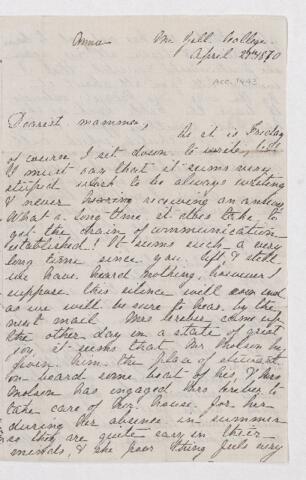 Anna
McGill College
April 29th 1870
Acc. 1443
Dearest mamma,
As it is Friday
of course I set down to write, but
I must say that it seems very
stupid work to be always writing
& never hearing receiving an answer
What a long time it does take to
get the chain of communication
established! It seems such a very
long time since you left, & still
we have heard nothing, however I
suppose this silence will soon end
as we will be sure to hear by the
next mail Mrs came up
the other day in a state of great
joy, it seems that Mr Molson has
given him the place of steward
on board some boat of his, & Mrs
Molson has engaged Mrs to
take care of her house for her
during her absence in summer
so they are quite easy in their
minds, & she poor thing feels very